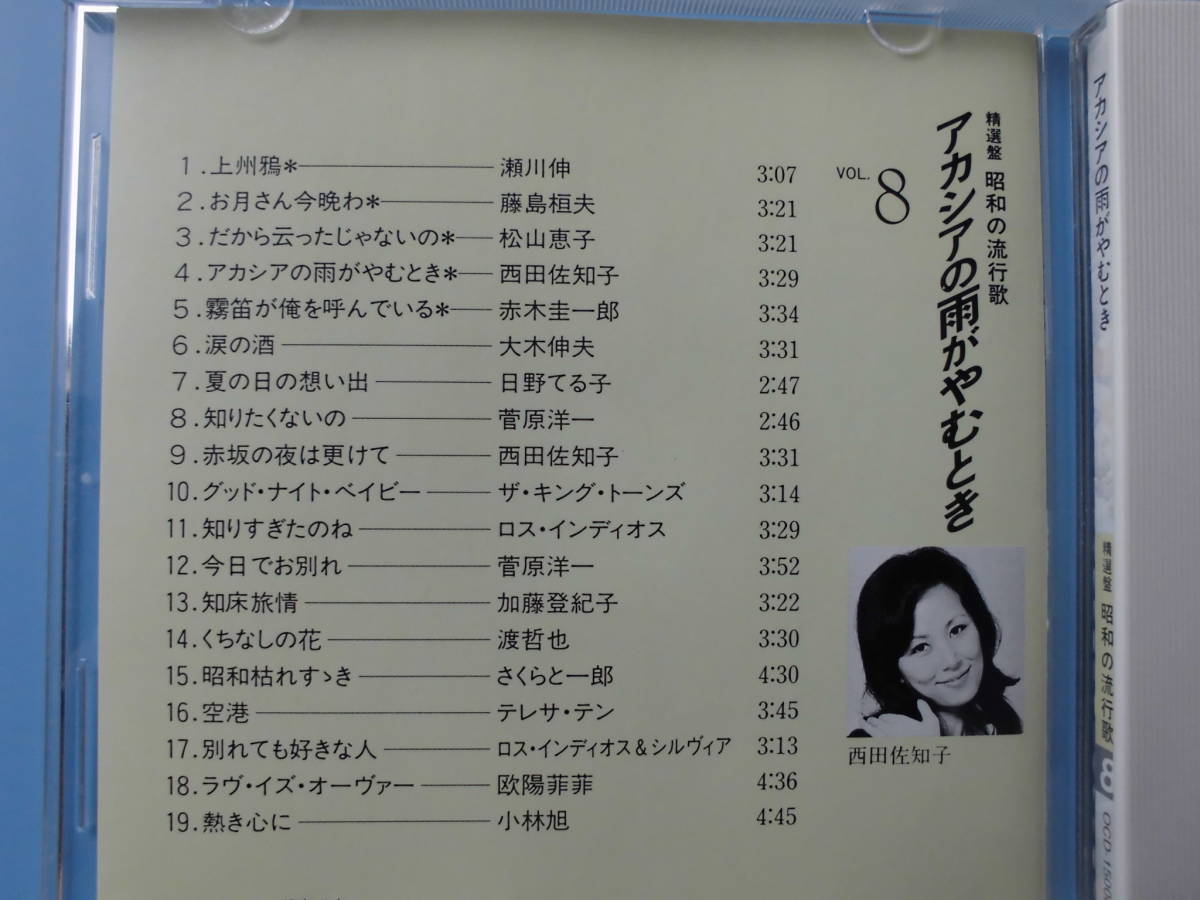 精選盤 昭和の流行歌
アカシアの雨がやむとき
VOL. 8
1.上州鴉* 瀬川伸 3:07
2.お月さん今晩わ* 藤島桓夫 3:21
3.だから云ったじゃないの* 松山恵子 3:21
4.アカシアの雨がやむとき* 西田佐知子 3:29
5.霧笛が俺を呼んでいる* 赤木圭一郎 3:34
6.涙の酒 大木伸夫 3:31
7.夏の日の想い出 日野てる子 2:47
8.知りたくないの 菅原洋一 2:46
9.赤坂の夜は更けて 西田佐知子 3:31
10.グッド・ナイト・ベイビー ザ・キング・トーンズ 3:14
11.知りすぎたのね ロス・インディオス 3:29
12.今日でお別れ 菅原洋一 3:52
13.知床旅情 加藤登紀子 3:22
14.くちなしの花 渡哲也 3:30
15.昭和枯れすゝき さくらと一郎 4:30
16.空港 テレサ・テン 3:45
17.別れても好きな人 ロス・インディオス&シルヴィア 3:13
18.ラヴ・イズ・オーヴァー 欧陽菲菲 4:36
19.熱き心に 小林旭 4:45
西田佐知子
アカシアの雨がやむとき 精選盤 昭和の流行歌 8